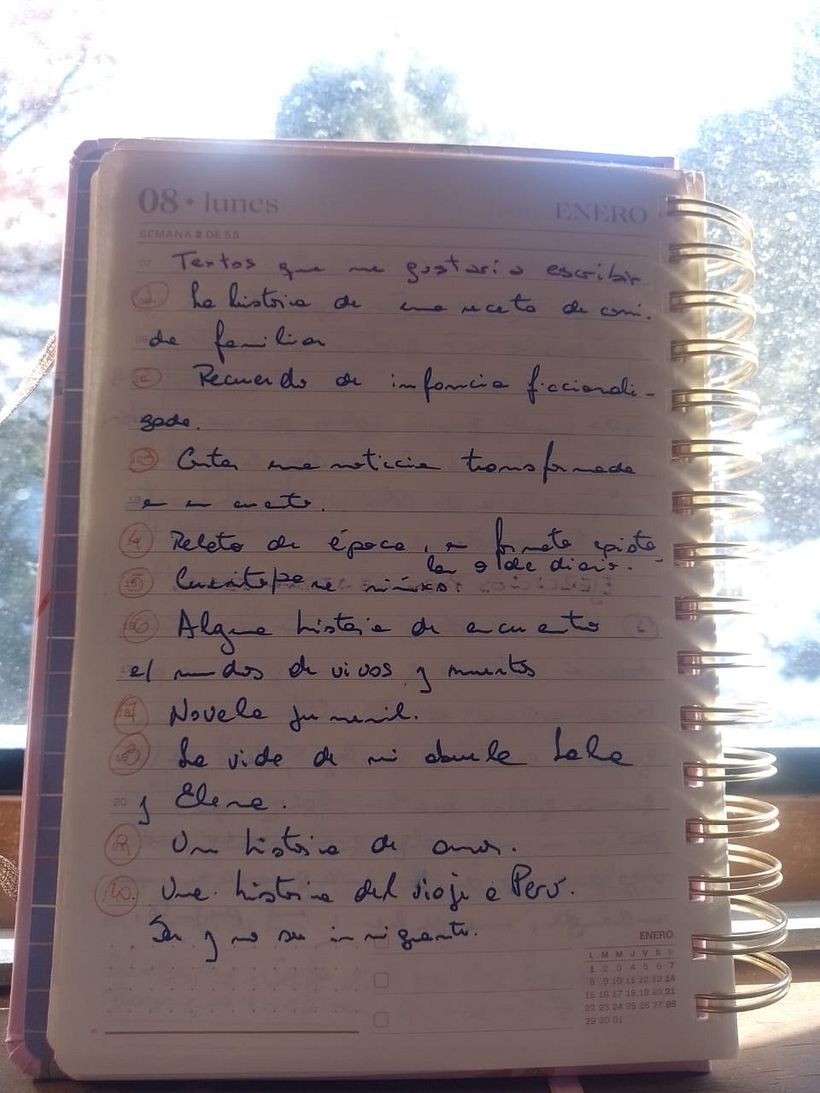 08 • lunes
ENERO
SEMANA 2 DE 53
Textos que me gustaria escribir
1. La historia de una receta de comi-
da familiar
2. Recuerdo de infancia ficcionali-
zado.
3. Contar una noticia transformada
en un cuento.
4. Relato de época, en formato episto-
lar o de diario.
5. Cuento para niñxs.
6. Alguna historia de encuentro
el mundos de vivos y muertos
7. Novela juvenil.
8. La vida de mi abuela Lala
20 y Elena.
9. Una historia de amor.
10. Una historia del viaje a Perú.
Ser y no ser inmigrante.
ENERO
L M M J V S D
1 2 3 4 5 6 7
8 9 10 11 12 13 14
15 16 17 18 19 20 21
22 23 24 25 26 27 28
29 30 31